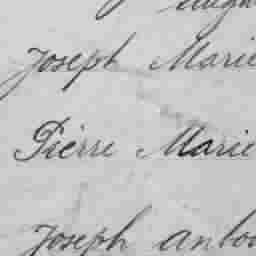 Joseph Marie
Pierre Marie
Joseph